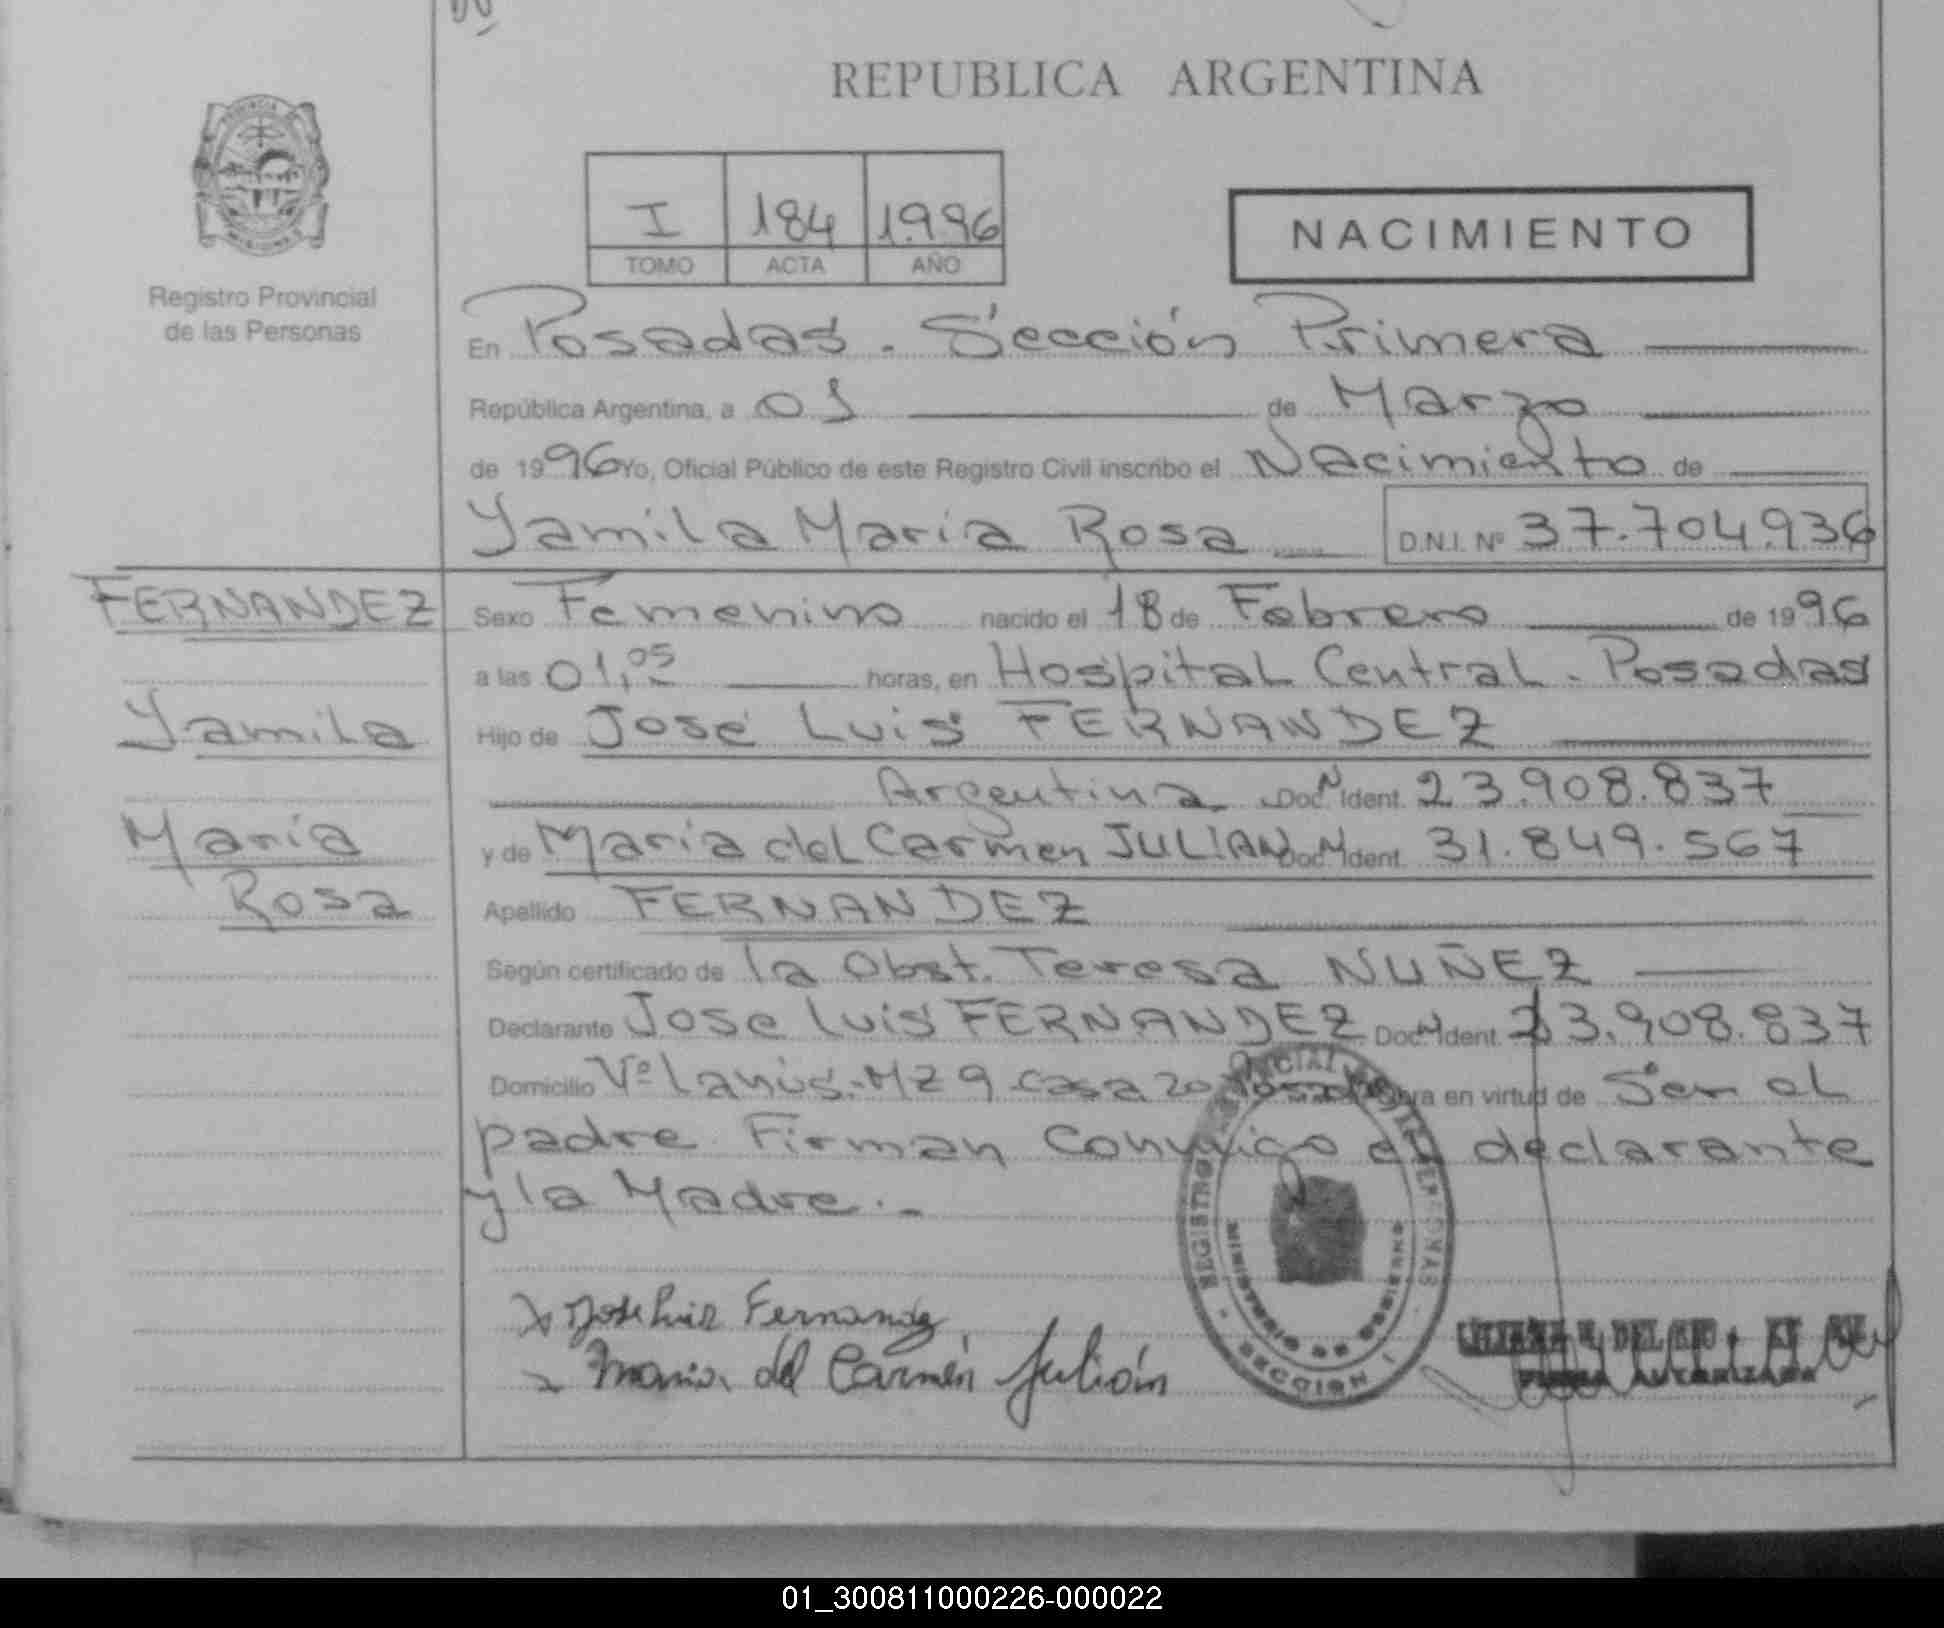 REPUBLICA ARGENTINA
I 184 1.996
TOMO ACTA AÑO
NACIMIENTO
Registro Provincial
de las Personas
En Posadas. Sección Primera
República Argentina, a 01 de Marzo
de 1996 Yo, Oficial Público de este Registro Civil inscribo el Nacimiento de
Yamila María Rosa D.N.I. Nº 37.704.936
FERNANDEZ
Yamila
María
Rosa
Sexo Femenino nacido el 18 de Febrero de 1996
a las 01,05 horas, en Hospital Central. Posadas
Hijo de José Luis FERNANDEZ
Argentina Doc N Ident. 23.908.837
y de María del Carmen JULIAN Doc N Ident. 31.849.567
Apellido FERNANDEZ
Según certificado de la Obst. Teresa NUÑEZ
Declarante Jose Luis FERNANDEZ Doc N Ident. 23.908.837
Domicilio Vº Lanús. MZ 9 casa 20 Posadas Obra en virtud de Ser el
padre Firman Conmigo el declarante
y la Madre.-
Jose Luis Fernandez
Maria del Carmen Julián
REGISTRO PROVINCIAL DE LAS PERSONAS
MINISTERIO DE GOBIERNO
SECCION I
FIRMA AUTORIZADA
01_300811000226-000022